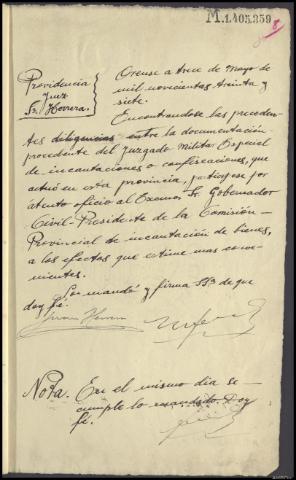 M.1.405.359
8
Providencia
Juez
Sr. Herrera.
Orense a trece de Mayo de
mil novecientos treinta y
siete.
Encontrandose las preceden-
tes diligencias entre la documentación
procedente del Juzgado Militar Especial
de incautaciones o confiscaciones, que
actuó en esta provincia, participese por
atento oficio al Excmo. Sr. Gobernador
Civil-Presidente de la Comisión
Provincial de incautación de bienes,
a los efectos que estime mas conve-
nientes.
Lo mandó y firma SSª de que
doy fé.
Nota. En el mismo dia se
cumple lo mandado. Doy
fé.